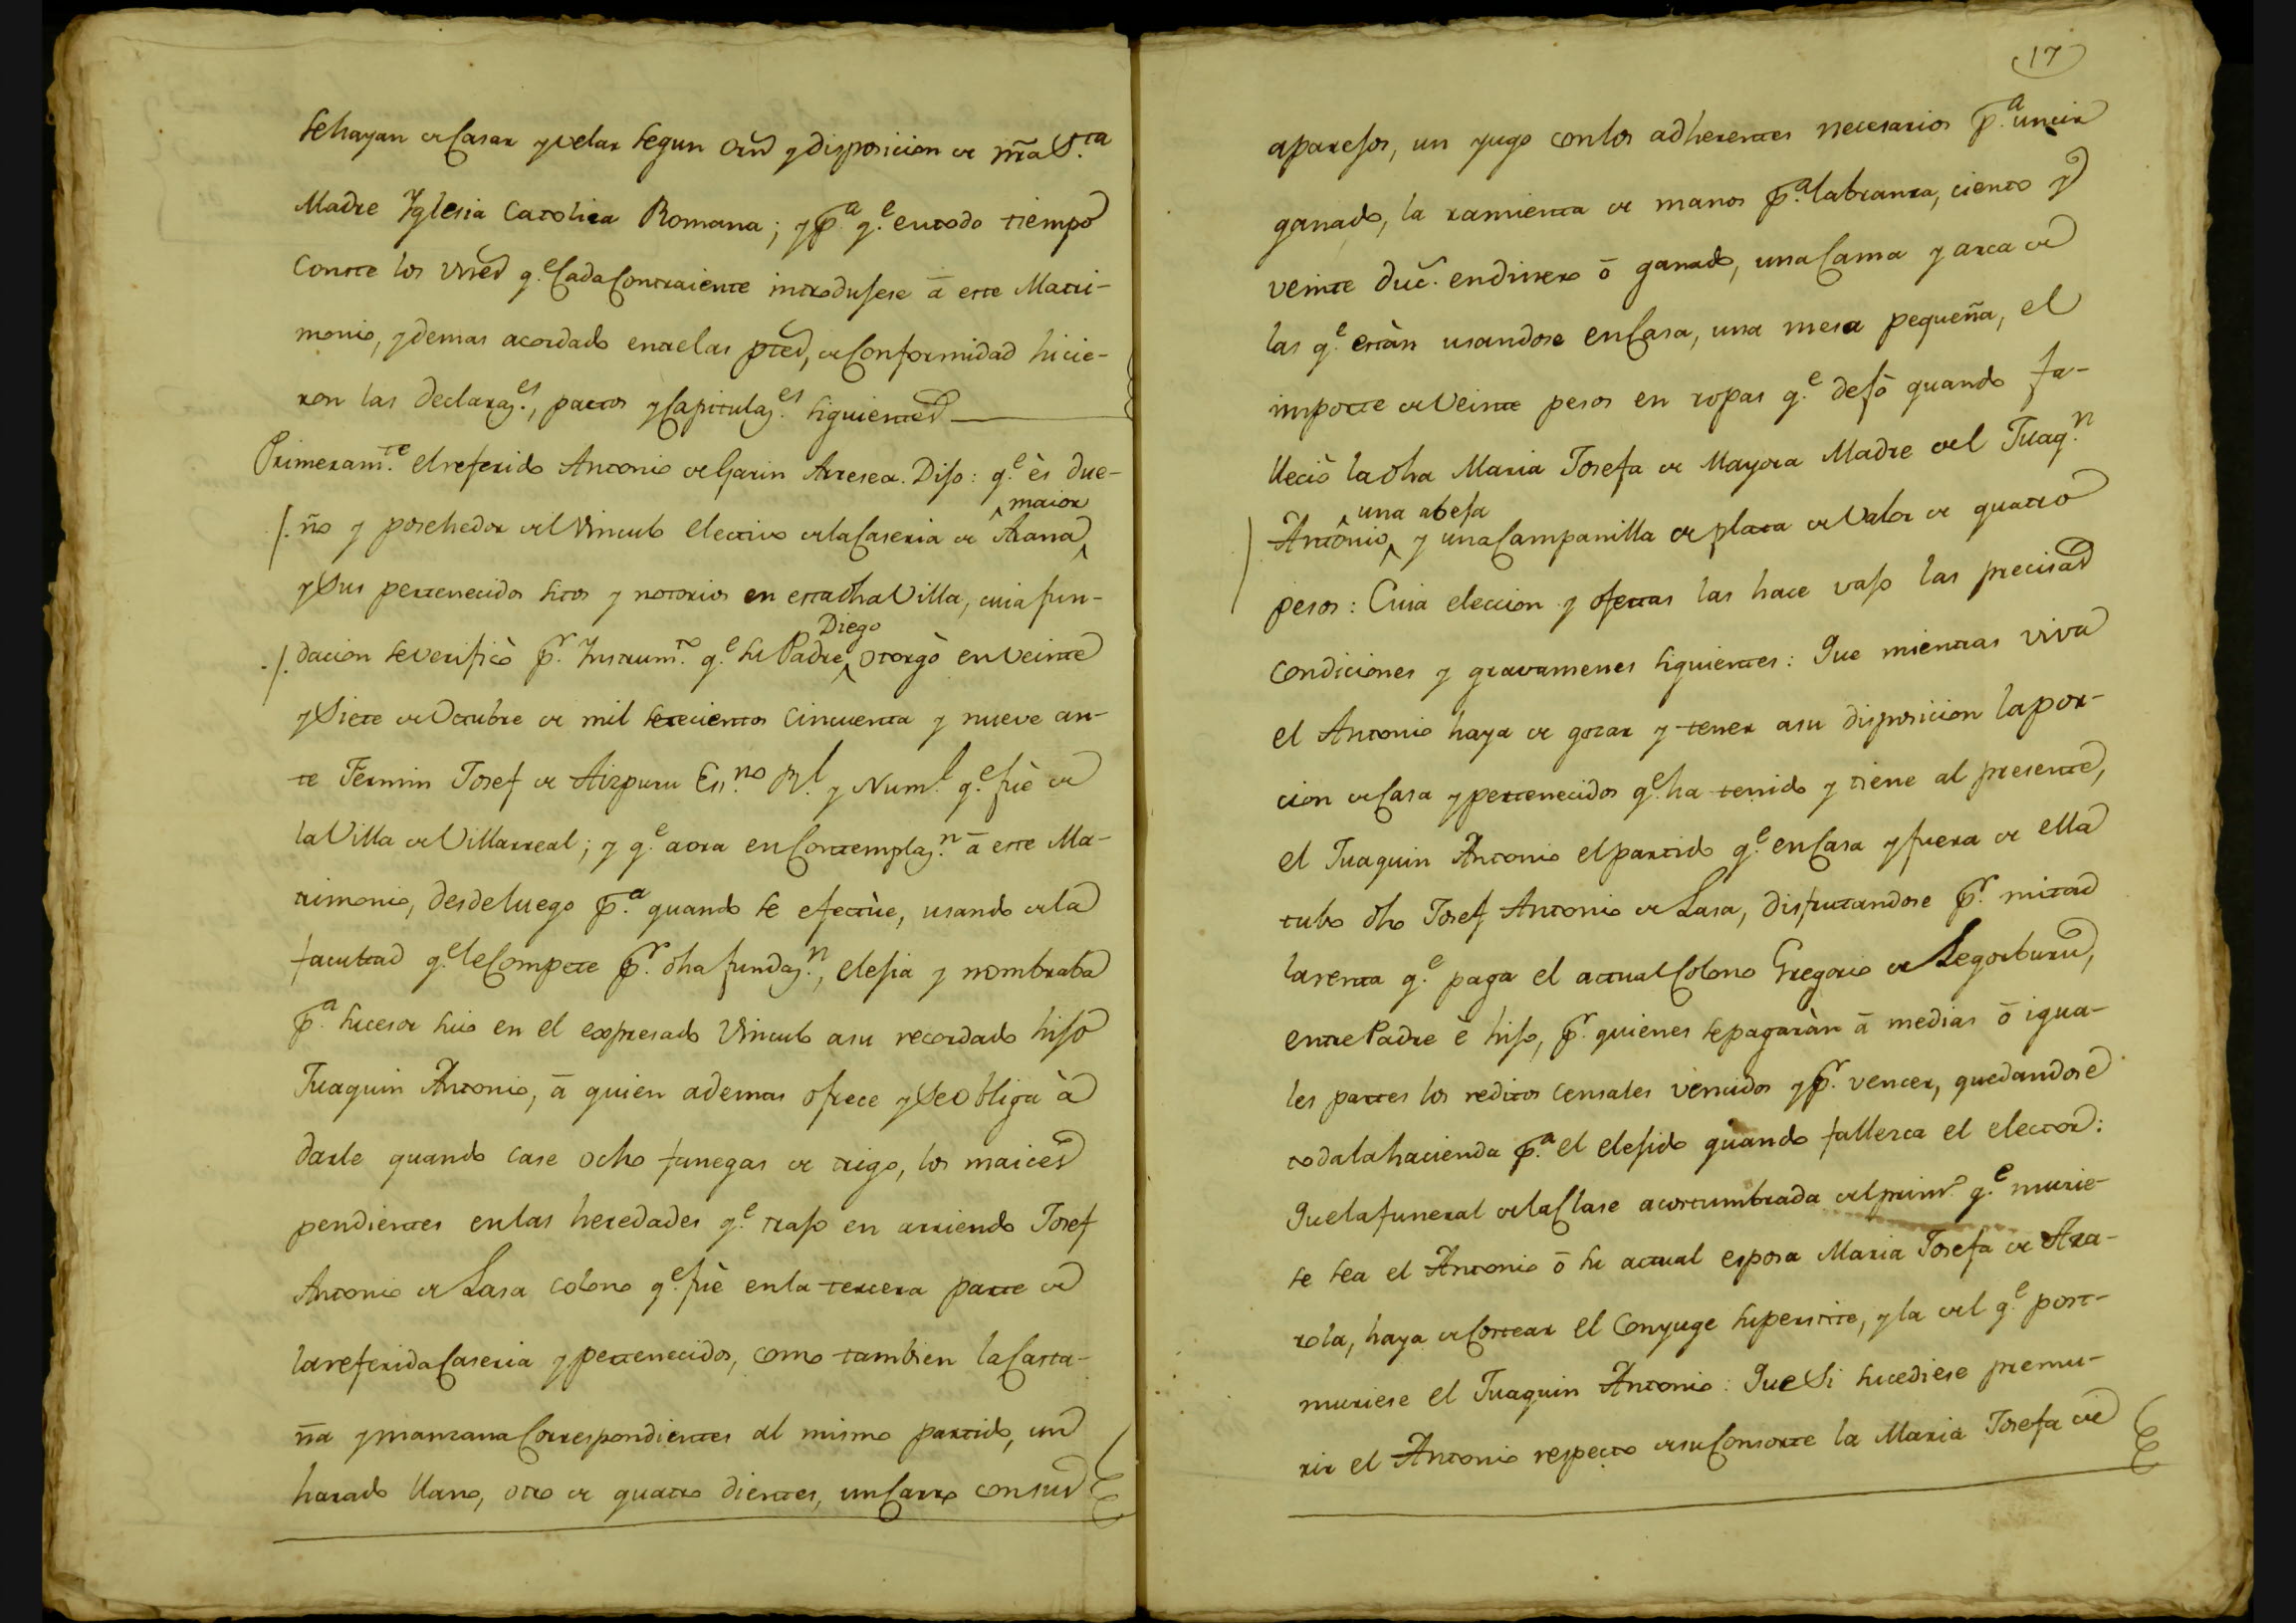 se hayan de Casar y velar segun orn y disposicion de nrã S.ta
Madre Yglesia Catolica Romana; y p.a q.e en todo tiempo
Conste los vnes q.e Cada Contraiente introdusese ã este Matri-
monio, y demas acordado entre las ptes, de Conformidad hicie-
ron las declaraz.es, pactos y Capitulaz.es siguientes
Primeram.te el referido Antonio de Garin Arresea. Diso: q.e ès due-
maior
ño y posehedor del Vinculo electivo de la Caseria de Arana
y sus pertenecidos sitos y notorios en esta dha Villa, cuia fun-
Diego
dacion se verificò p.r Instrum.to q.e su Padre otorgò en veinte
y Siete de Octubre de mil setecientos cincuenta y nueve an-
te Fermin Josef de Aizpuru Es.no R.l y Num.l q.e fuè de
la Villa de Villarreal; y q.e aora en Contemplaz.n ã este Ma-
trimonio, desde luego p.a quando se efectùe, usando de la
facultad q.e le Compete p.r dha fundaz.n, elesia y nombraba
p.a sucesor suio en el expresado Vinculo a su recordado hiso
Juaquin Antonio, ã quien ademas ofrece y Se obliga à
darle quando case ocho fanegas de trigo, los maices
pendientes en las heredades q.e traso en arriendo Josef
Antonio de Lasa colono q.e fuè en la tercera parte de
la referida Caseria y pertenecidos, como tambien la Casta-
ña y manzana Correspondientes al mismo partido, un
harado llano, otro de quatro dientes, un Carro con sus
17
aparesos, un yugo con los adherentes necesarios p.a uncir
ganado, la ramienta de manos p.a labranza, ciento y
veinte duc.s en dinero ō ganado, una Cama y arca de
las q.e estàn usandose en Casa, una mesa pequeña, el
importe de Veinte pesos en ropas q.e desò quando fa-
lleciò la dha Maria Josefa de Mayora Madre del Juaq.n
una abesa
Antonio, y una Campanilla de plata de Valor de quatro
pesos: Cuia eleccion y ofertas las hace vaso las precisas
condiciones y gravamenes siguientes: Que mientras viva
el Antonio haya de gozar y tener a su disposicion la por-
cion de Casa y pertenecidos q.e ha tenido y tiene al presente,
el Juaquin Antonio el partido q.e en Casa y fuera de ella
tubo dho Josef Antonio de Lasa, disfrutandose p.r mitad
la renta q.e paga el actual Colono Gregorio de Legorburu,
entre Padre è hiso, p.r quienes se pagaràn ã medias ō igua-
les partes los reditos censales vencidos y p.r vencer, quedandose
toda la hacienda p.a el elesido quando fallezca el elector:
Que la funeral de la Clase acostumbrada del prim.o q.e murie-
se sea el Antonio ō su actual esposa Maria Josefa de Aza-
rola, haya de Costear el Conyuge superstite, y la del q.e post-
muriese el Juaquin Antonio: Que Si sucediese premu-
rir el Antonio respecto de su Consorte la Maria Josefa de